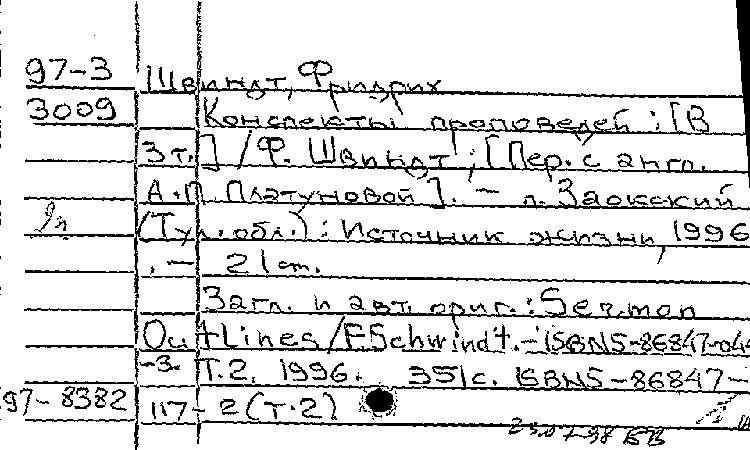 97-3 Швиндт, Фридрих
3009 Конспекты проповедей : [В
3 т.] / Ф. Швиндт ; [Пер. с англ.
А.П Платуновой ]. — п. Заокский
(Тул. обл.) : Источник жизни, 1996
. — 21 cm.
Загл. и авт. ориг. : Sermon
Outlines / F Schwindt. — ISBN 5-86847-044
-3. Т. 2. 1996. 351 с. ISBN 5-86847-
97-8382 117-2 (Т. 2)
23.07.98